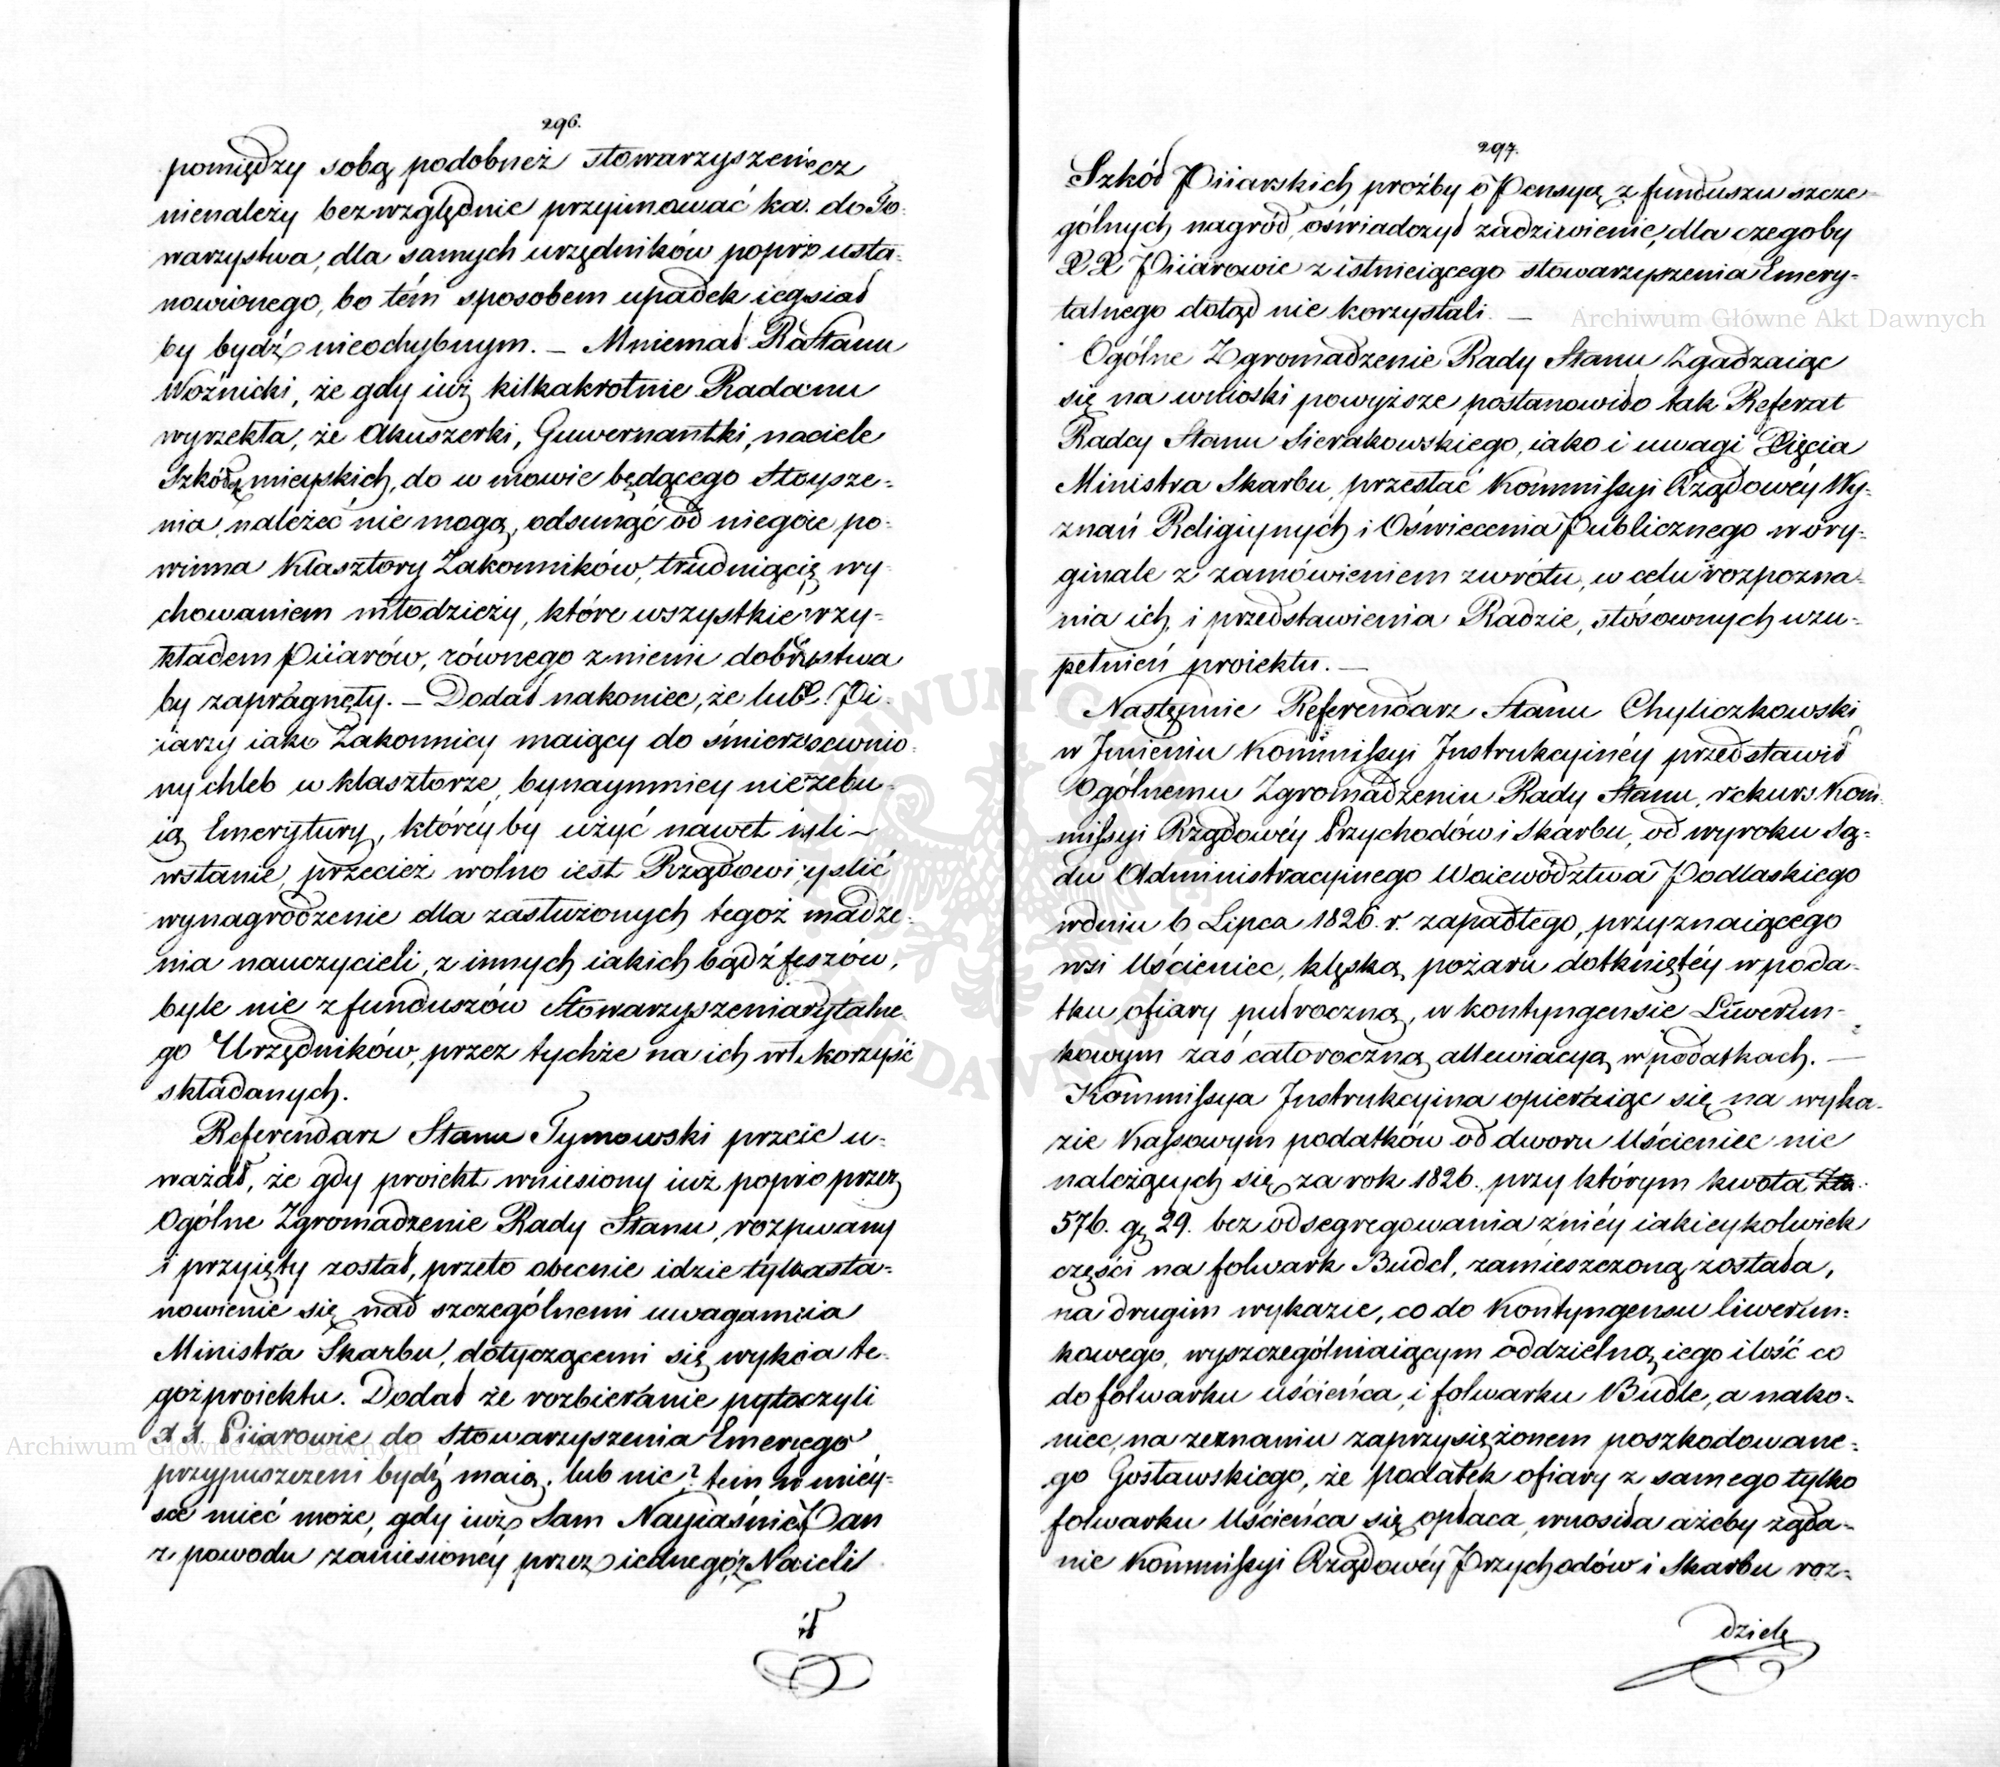 296.
pomiędzy sobą podobneż stowarzyszenie cz
nienależy bezwzględnie przyimować ka. do To-
warzystwa, dla samych urzędników poprz usta-
nowionego, bo tém sposobem upadek iego siał
by bydź nieochybnym. — Mniemał Ra Stanu
Woźnicki, że gdy iuż kilkakrotnie Rada nu
wyrzekła, że Akuszerki, Guwernantki, naciele
Szkół mieyskich, do w mowie będącego Stoysze-
nia, należeć nie mogą, odsunąć od niegoie po-
winna Klasztory Zakonników, trudniącię wy-
chowaniem młodzieży, które wszystkie rzy-
kładem Piiarów, równego z niemi dobrstwa
by zapragnęły. — Dodał nakoniec, że lub Pi-
iarzy iako Zakonnicy maiący do śmierci ewnio-
ny chleb w klasztorze, bynaymniey nie zebu-
ią Emerytury, któréyby użyć nawet li
w stanie, przecież wolno iest Rządowi yślić
wynagrodzenie dla zasłużonych tegoż madze-
nia nauczycieli, z innych iakich bądź feszów,
byle nie z funduszów Stowarzyszenia rytalne
go Urzędników, przez tychże na ich wł. korzyść
składanych.
Referendarz Stanu Tymowski przcie u-
ważał, że gdy proiekt wniesiony iuż poprio przez
Ogólne Zgromadzenie Rady Stanu, rozpwany
i przyięty został, przeto obecnie idzie tylk asta-
nowienie się nad szczególnemi uwagami cia
Ministra Skarbu, dotyczącemi się wykcia te-
goż proiektu. Dodał że rozbieranie pyta czyli
XX. Piiarowie do Stowarzyszenia Emerego
przypuszczeni bydź maią, lub nie? tem w miéy-
sce mieć może, gdy iuż Sam Nayiaśniéy Pan
z powodu zaniesionéy przez iednego z Naicieli
ił
297.
Szkół Piiarskich prożby o Pensyą z funduszu szcze-
gólnych nagród, oświadczył zadziwienie, dla czegoby
XX Piiarowie z istnieiącego stowarzyszenia Emery-
talnego dotąd nie korzystali. —
Ogólne Zgromadzenie Rady Stanu Zgadzaiąc
się na wnioski powyższe, postanowiło tak Referat
Radcy Stanu Sierakowskiego, iako i uwagi Xięcia
Ministra Skarbu, przesłać Kommissyi Rządowéy Wy-
znań Religiynych i Oświecenia Publicznego w ory-
ginale z zamówieniem zwrotu, w celu rozpozna-
nia ich, i przedstawienia Radzie, stósownych uzu-
pełnień proiektu. —
Następnie Referendarz Stanu Chyliczkowski
w Imieniu Kommissyi Instrukcyinéy przedstawił
Ogólnemu Zgromadzeniu Rady Stanu, rekurs Kom-
missyi Rządowéy Przychodów i Skarbu, od wyroku Są-
du Administracyinego Woiewództwa Podlaskiego
w dniu 6 Lipca 1826. r. zapadłego, przyznaiącego
wsi Uścieniec, klęską pożaru dotkniętéy w poda-
tku ofiary półroczną, w kontyngensie Liwerun-
kowym zaś całoroczną allewiacyą w podatkach. —
Kommissya Instrukcyina opieraiąc się na wyka-
zie Kassowym podatków od dworu Uścieniec nie
należących się za rok 1826., przy którym kwota Złp.
576. gr 29. bez odsegregowania z niéy iakieykolwiek
części na folwark Budel, zamieszczoną została,
na drugim wykazie, co do Kontyngensu liwerun-
kowego, wyszczególniaiącym oddzielną iego ilość co
do folwarku uścieńca, i folwarku Budle, a nako-
niec, na zeznaniu zaprzysiężonem poszkodowane-
go Gosławskiego, że podatek ofiary z samego tylko
folwarku Uścieńca się opłaca, wnosiła ażeby żąda-
nie Kommissyi Rządowéy Przychodów i Skarbu roz-
dzielę